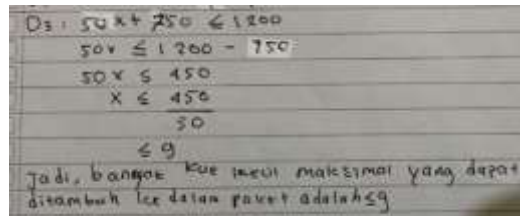 D3 : 50 x + 750 ≤ 1200
50x ≤ 1200 - 750
50 x ≤ 450
x ≤ 450
50
≤ 9
Jadi, banyak kue kecil maksimal yang dapat
ditambah ke dalam paket adalah ≤ 9